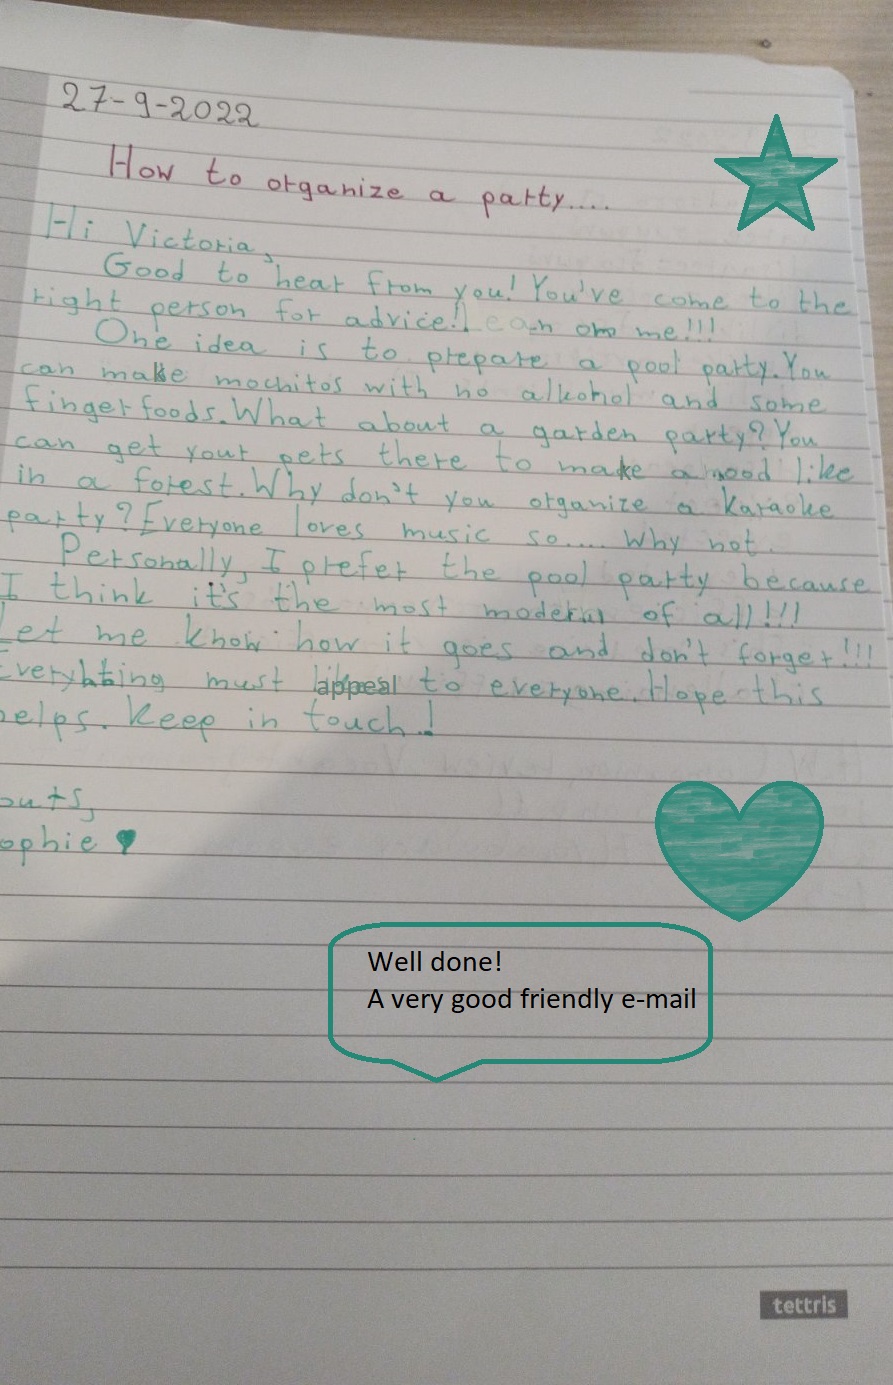 27-9-2022
How to organize a party....
Hi Victoria,
Good to hear from you! You've come to the
right person for advice! Lean on me!!!
One idea is to prepare a pool party. You
can make mochitos with no alkohol and some
finger foods. What about a garden party? You
can get your pets there to make a mood like
in a forest. Why don't you organize a karaoke
party? Everyone loves music so.... Why not.
Personally, I prefer the pool party because
I think it's the most modern of all!!!
Let me know how it goes and don't forget!!!
Everyhting must appeal to everyone. Hope this
helps. Keep in touch!
ours,
ophie
Well done!
A very good friendly e-mail
tettris